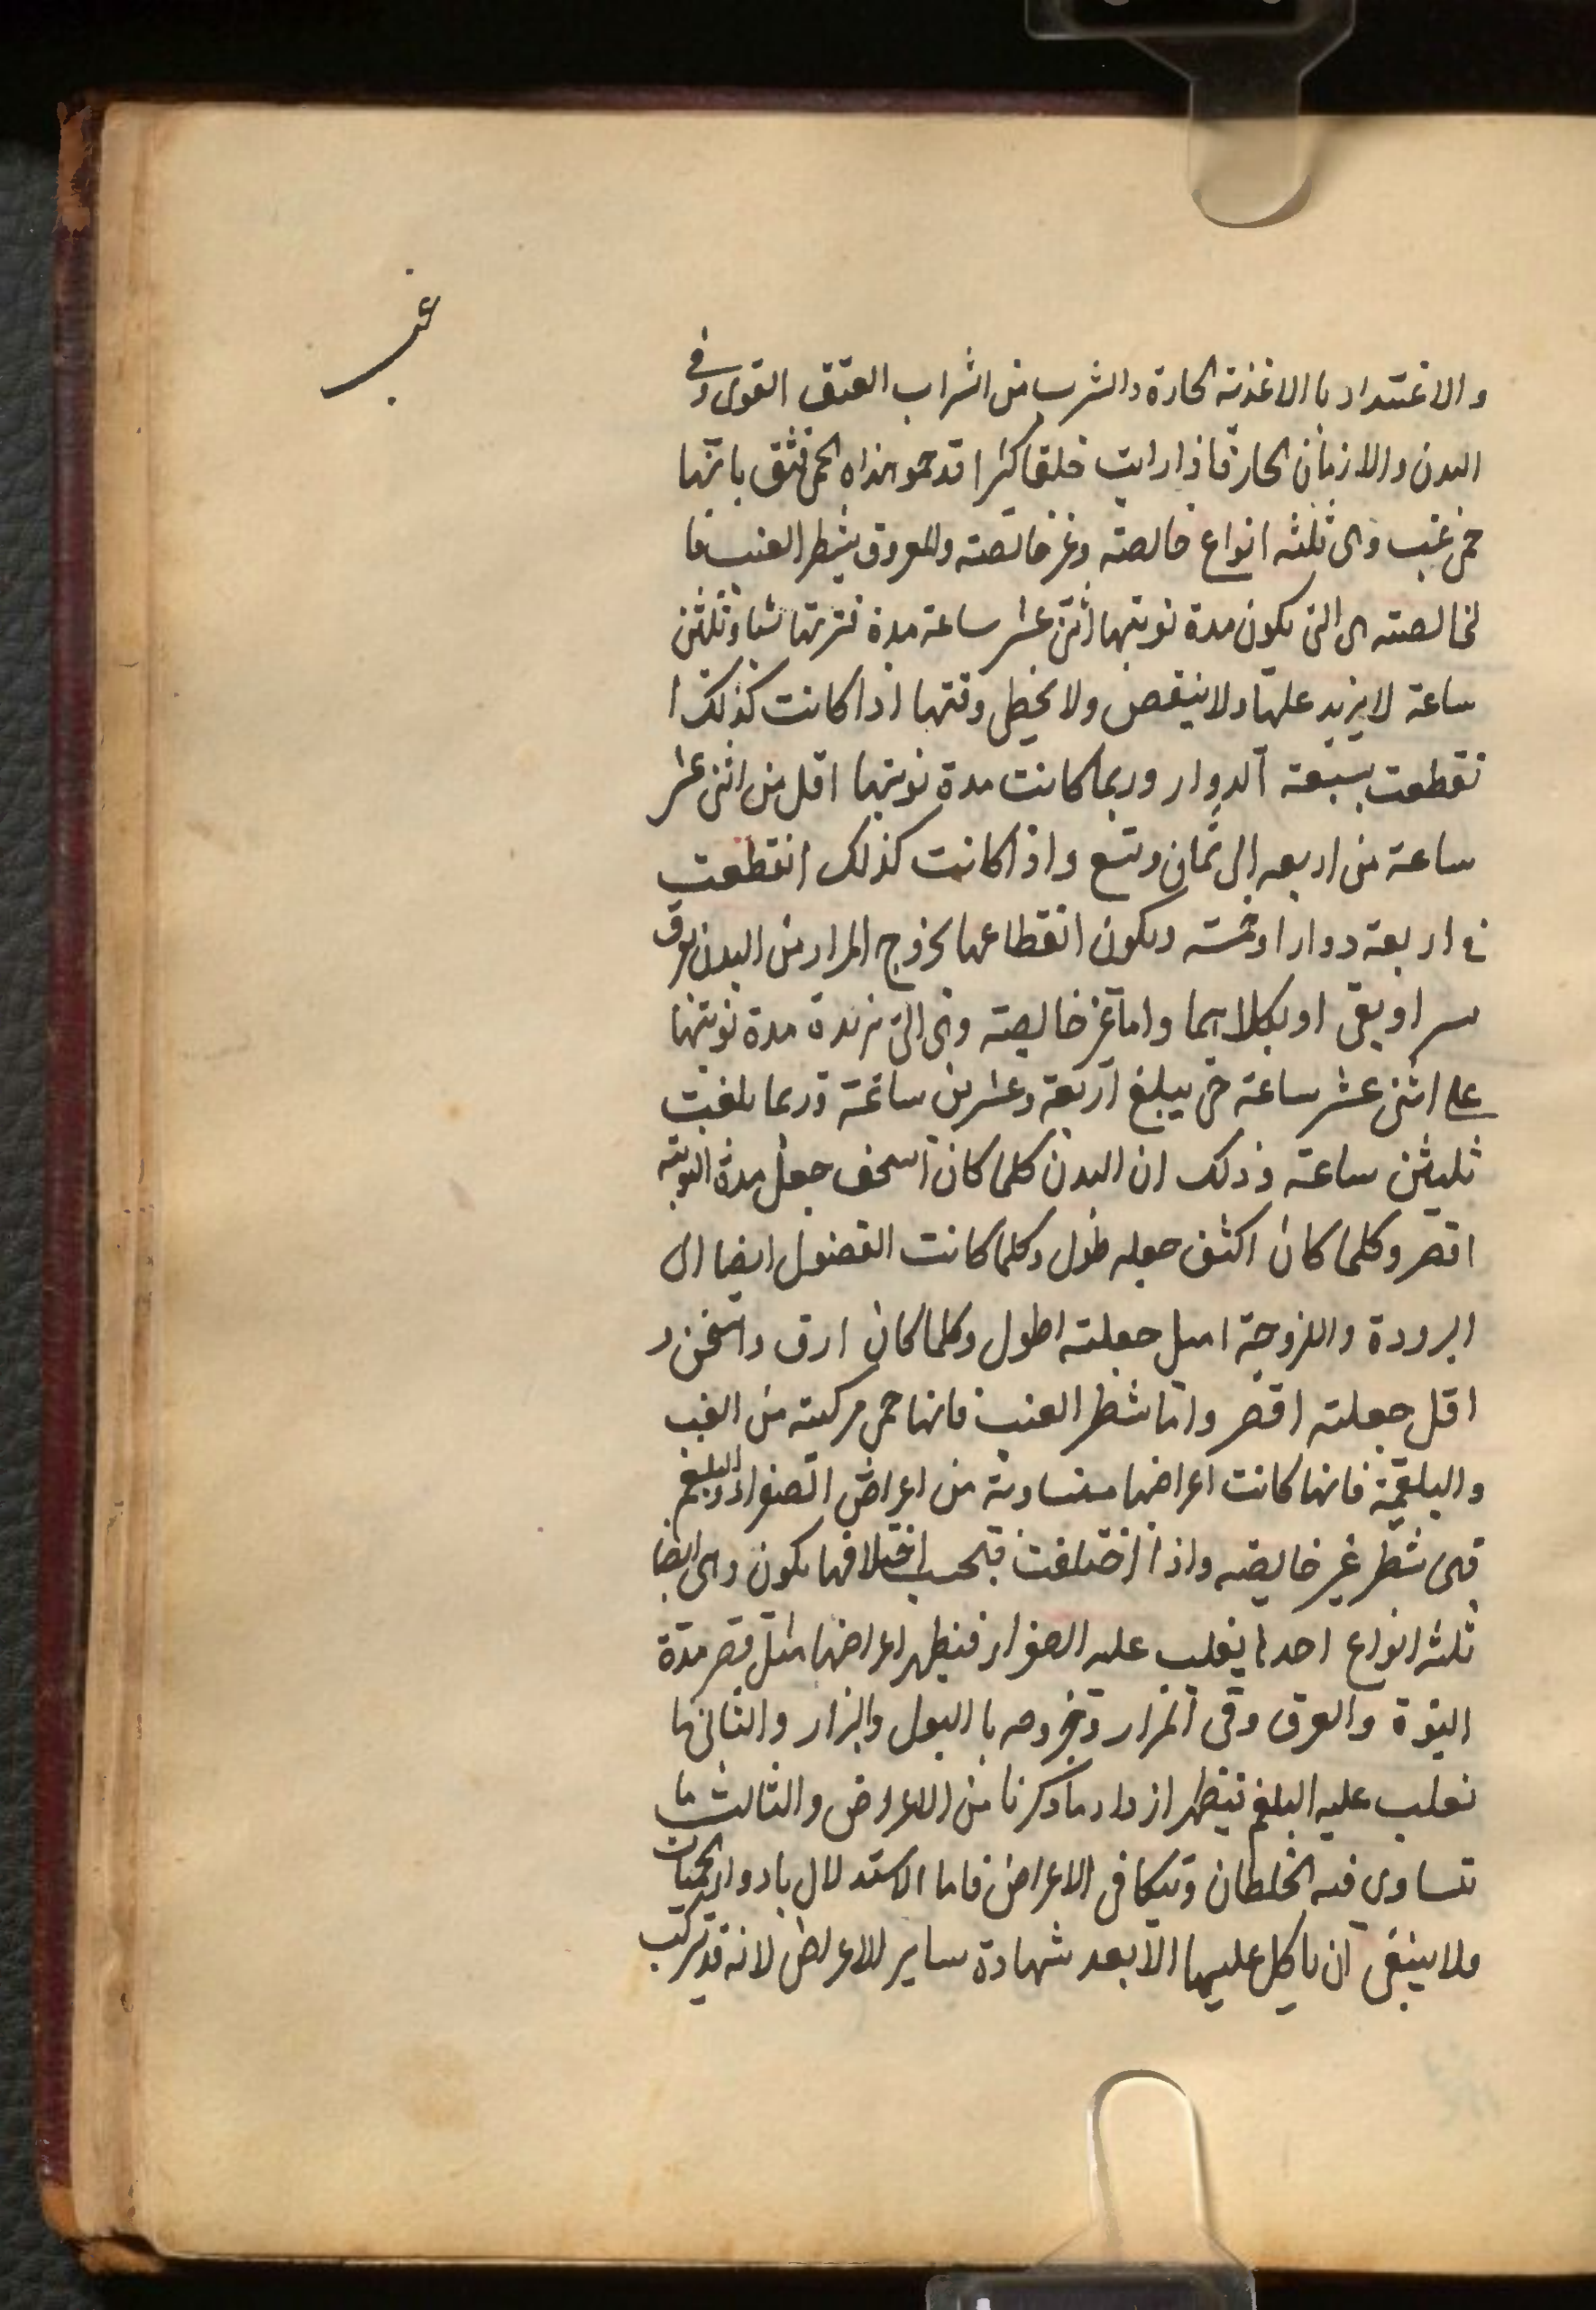 غب
والاغتداد بالاغذية الحارة والشرب من الشراب العتق القوى وفى
البدن والازمان الحارة فاذا رايت خلقا كثيرا قد حموا هذاه الحمى فثق بانها
حمى غب وهى ثلثه انواع خالصته وغير خالصته والمعروف بشطر الغب فا
لخالصته هى التى يكون مدة نوبتها اثنى عشر ساعة مدة فترتها ستا وثلثين
ساعة لايزيد عليها ولا ينقص ولا يخطى وقتها اذا كانت كذلك ا
نقطعت بسبعة آلدوار وربما كانت مدة نوبتها اقل من اثنى عشر
ساعة من اربعه الى ثمان وتسع واذا كانت كذلك انقطعت
فى اربعة دوار اوخمسته ويكون انقطاعها بخروج المرار من البدن بعرق
او بقى او بكلاهما واما غير خالصته وهى التى تزيدة مدة نوبتها
على اثنى عشر ساعة حتى يبلغ اربعة وعشرين ساعة وربما بلغت
ثليثين ساعة وذلك ان البدن كلما كان اسخف جعل مدة النوبته
اقصر وكلما كان اكثف جعله طول وكلما كانت الفضول ايضا الى
البرودة واللزوجة اميل جعلته اطول وكلما كان ارق واسخن و
اقل جعلته اقصر واما شطر الغب فانها حمى مركبته من الغب
والبلغمية فانها كانت اعراضها متساوية من اعراض الصفراء والبلغم
فهى شطر غير خالصته واذا اختلفت فبحسب اختلافها يكون وهى ايضا
ثلثه انواع احدها يغلب عليه الصفراء فيظهر اعراضها مثل قصر مدة
النوبة والعرق وقى المرار وخروجه با البول والبراز والثانى ما
يغلب عليه البلغم فيظهر ما ذكرنا من الاعراض والثالث ما
تتساوى فيه الخلطان وتتكافى الاعراض فاما الاستدلال بادوار الحميات
ولا ينبغى آن ياكل عليها الا بعد شهادة ساير للاعراض لانه قد تركب